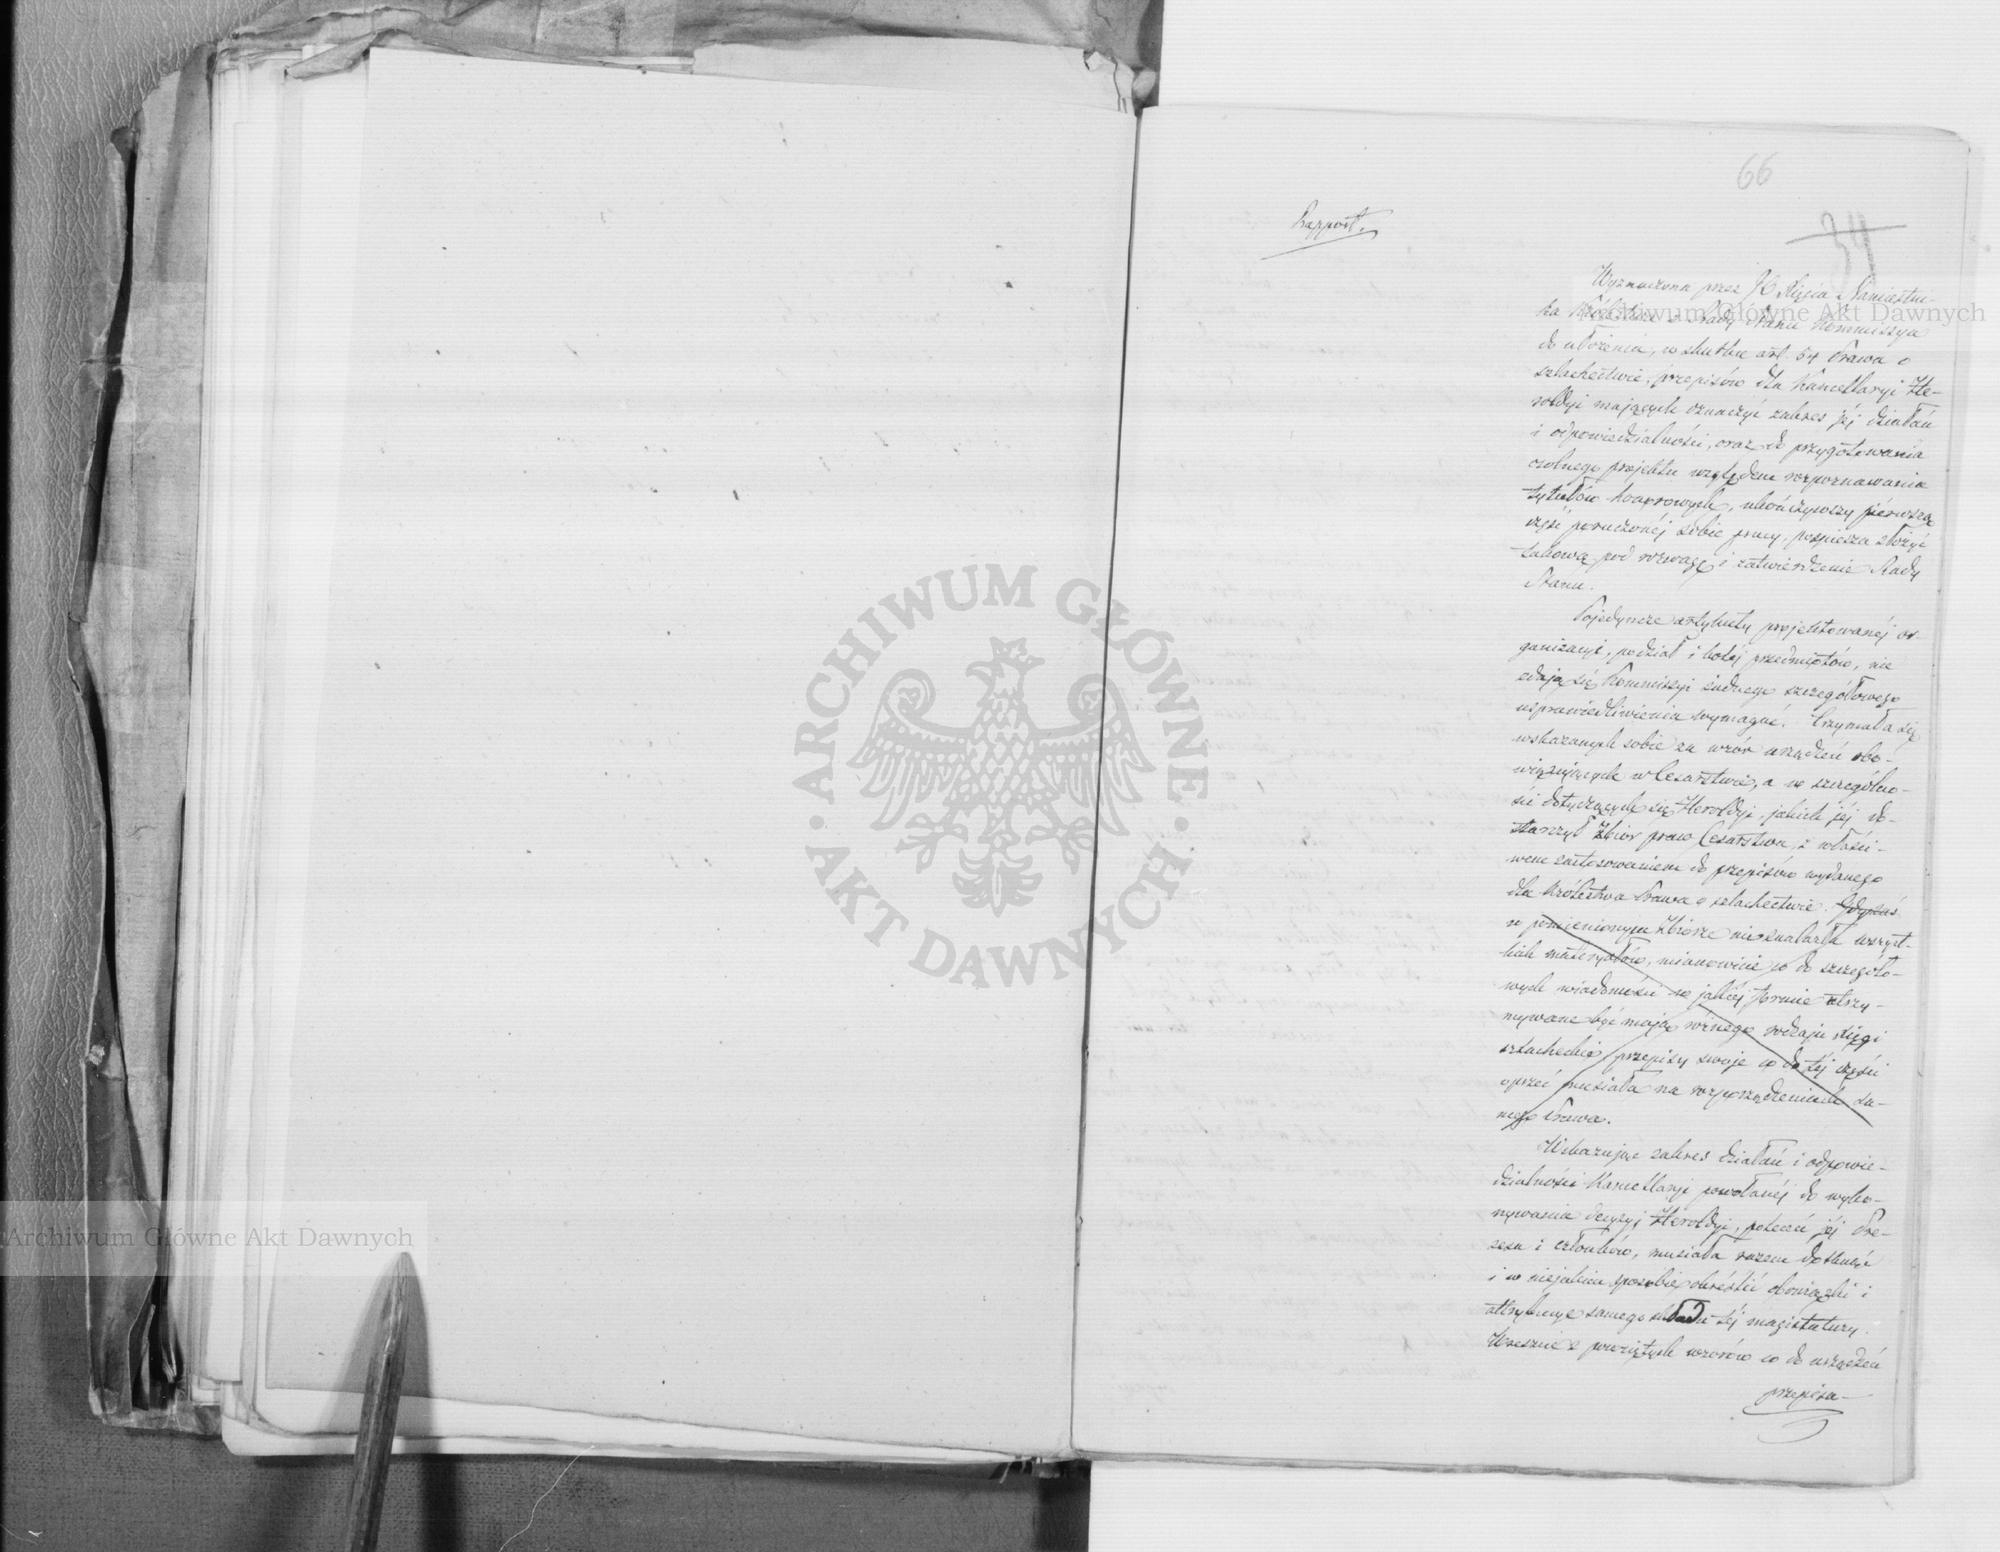 66
34
Rapport.
Wyznaczona przez JO Xięcia Namiestni-
ka Królestwa z Rady Stanu Kommissya
do ułożenia, w skutku art. 54 Prawa o
szlachectwie, przepisów dla Kancellaryi He-
roldyi mających oznaczyć zakres jéj działań
i odpowiedzialności, oraz do przygotowania
osobnego projektu względem rozpoznawania
tytułów honorowych, ukończywszy pierwszą
część poruczonéj sobie pracy, pospiesza złożyć
takową pod rozwagę i zatwierdzenie Rady
Stanu.
Pojedyncze artykuły projektowanéj or-
ganizacyi, podział i koléj przedmiotów, nie
zdają się Kommissyi żadnego szczegółowego
usprawiedliwienia wymagać. Trzymała się
wskazanych sobie za wzór urządzeń obo-
wiązujących w Cesarstwie, a w szczególno-
ści dotyczących się Heroldyi, jakich jéj do-
starczył Zbiór praw Cesarstwa, z właści-
wem zastosowaniem do przepisów wydanego
dla Królestwa Prawa o szlachectwie. Gdy zaś
w pomienionym Zbiorze nie znalazła wszyst-
kich materyałów, mianowicie co do szczegóło-
wych wiadomości w jakiéj formie utrzy-
mywane być mają różnego rodzaju xięgi
szlacheckie, przepisy swoje co do téj części
oprzeć musiała na rozporządzeniach sa-
mego Prawa.
Wskazując zakres działań i odpowie-
dzialności Kancellaryi powołanéj do wyko-
nywania decyzyi Heroldyi, poleceń jéj Pre-
zesa i członków, musiała razem dotknąć
i w niejakim sposobie określić obowiązki i
attrybucye samego składu téj magistratury.
Wreszcie z powziętych wzorów co do urządzeń
przepisa-
Archiwum Główne Akt Dawnych
Archiwum Główne Akt Dawnych
ARCHIWUM GŁÓWNE
AKT DAWNYCH